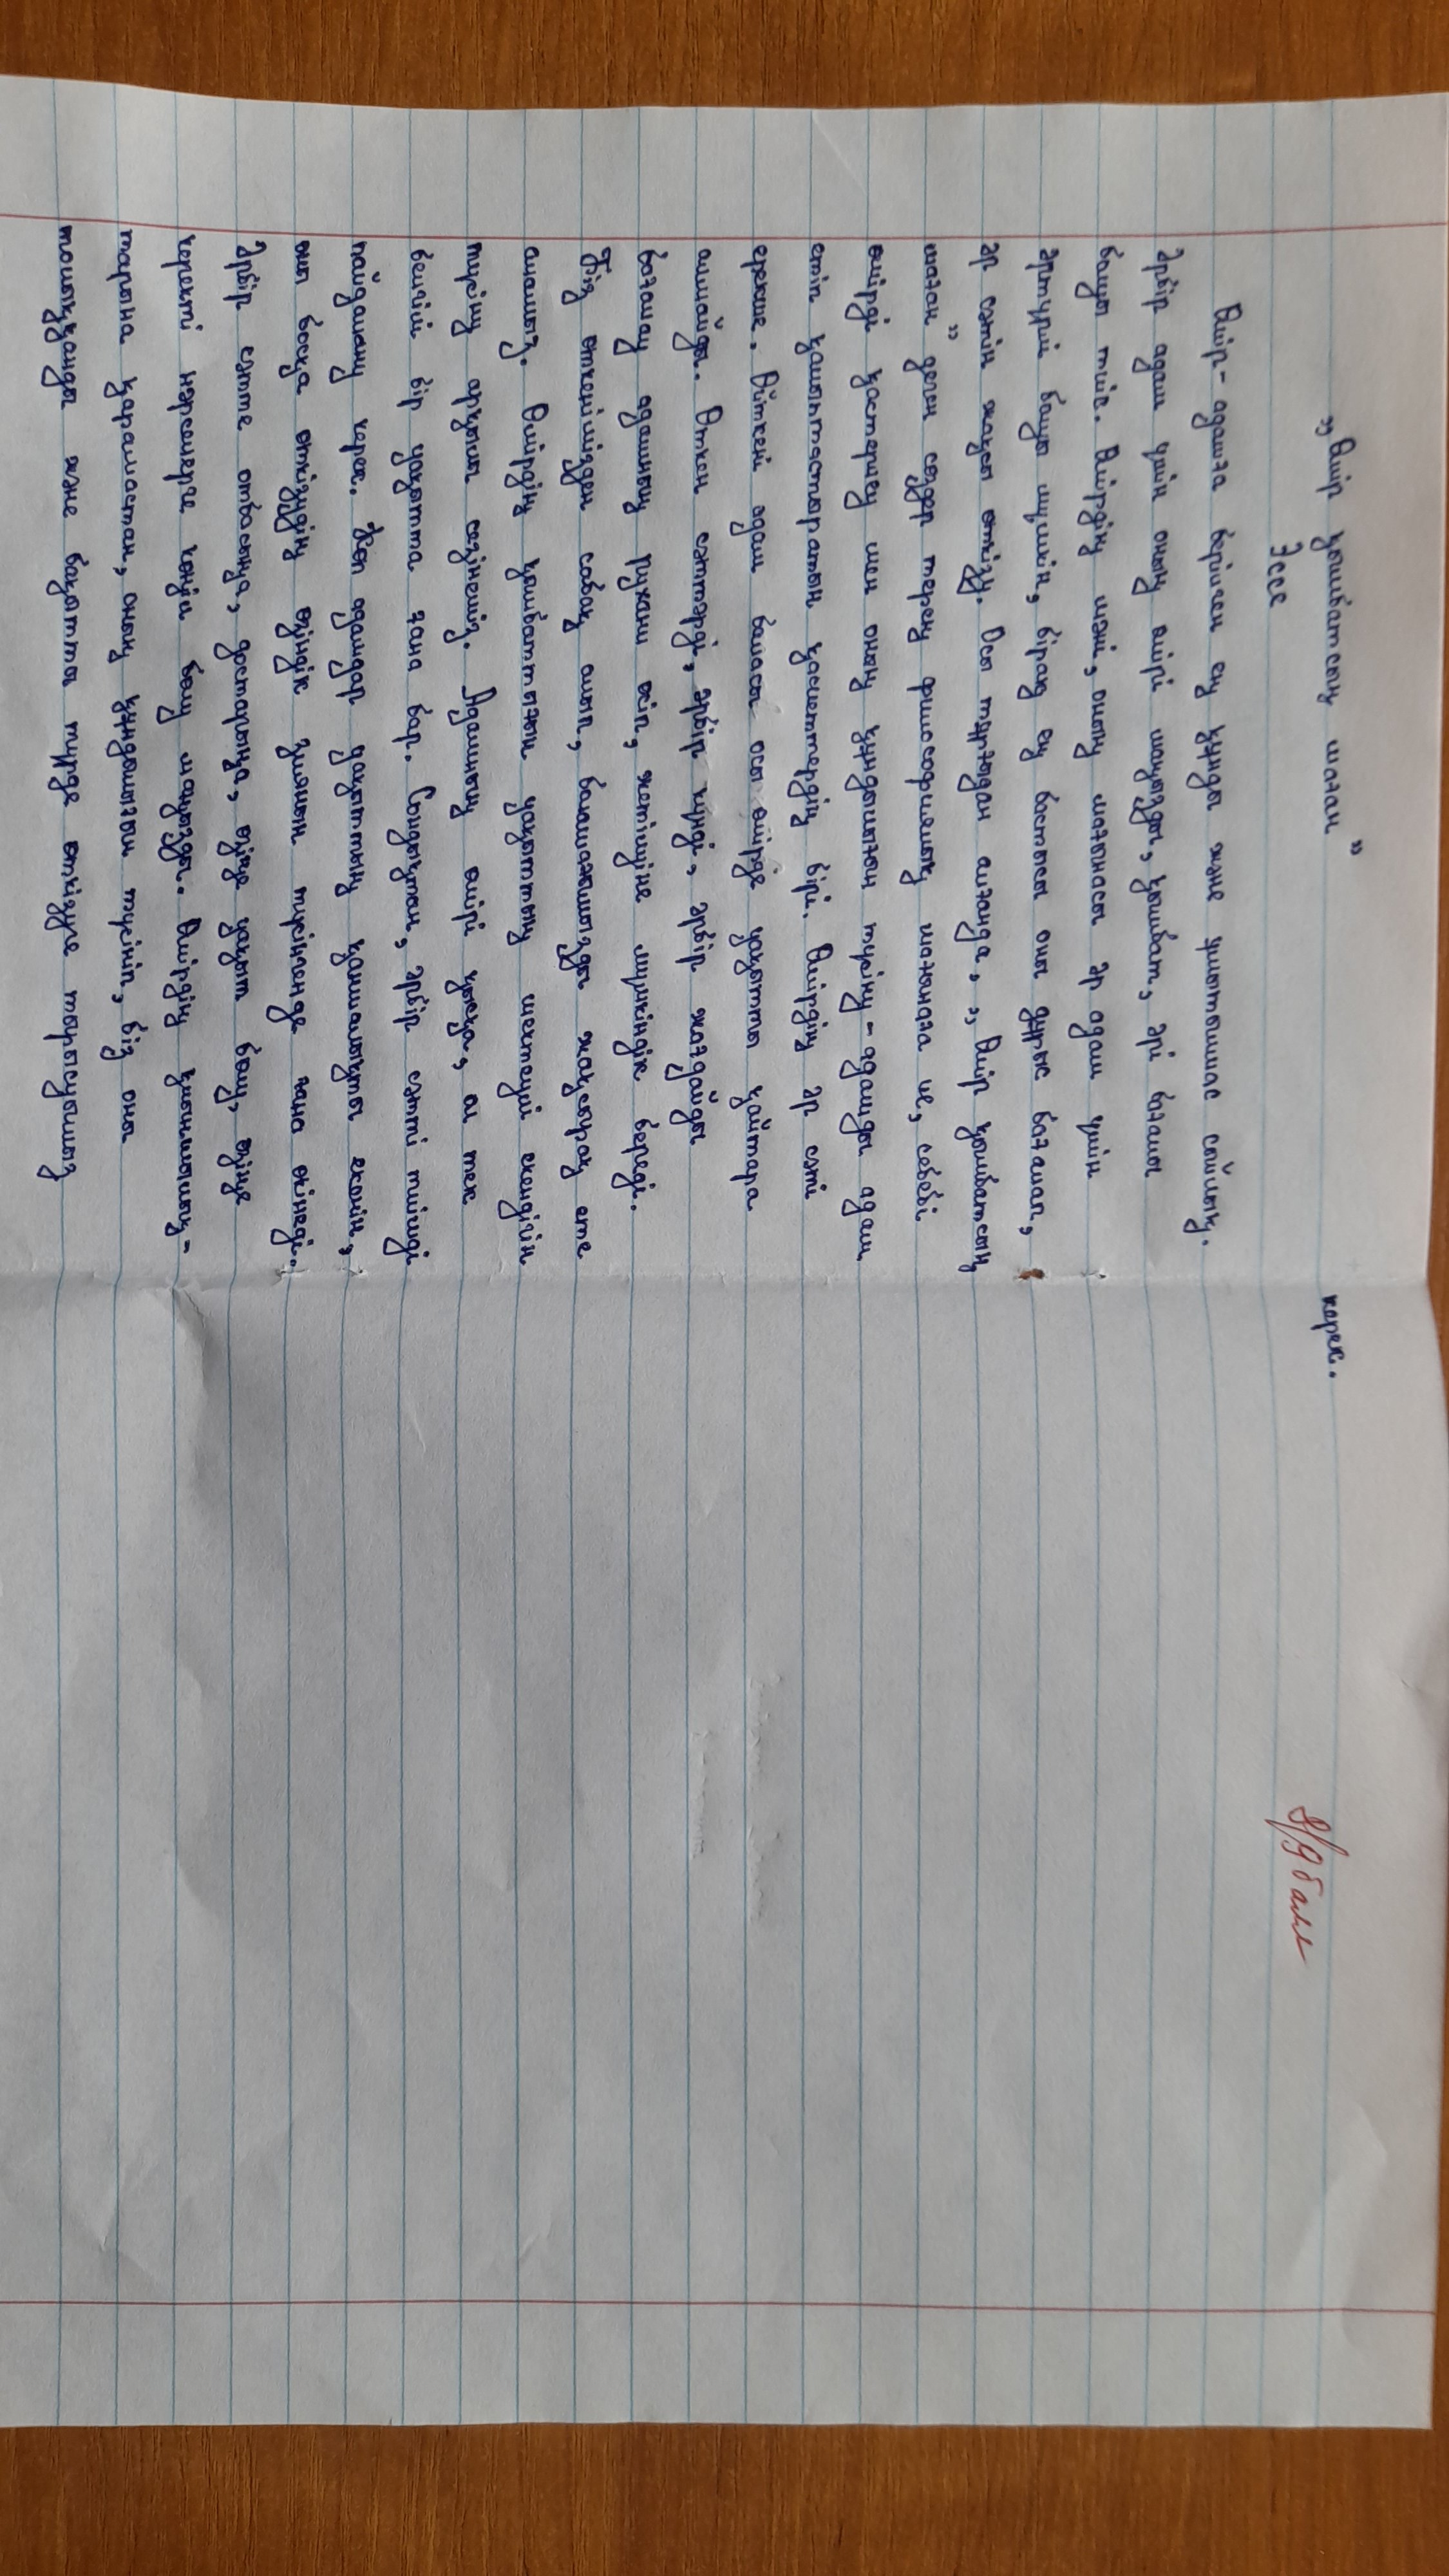 „Өмір қымбатсың маған"
Эссе
Өмір - адамға берілген ең құнды және ұмытылмас сыйлық.
Әрбір адам үшін оның өмірі маңызды, қымбат, әрі бағалы
болуы тиіс. Өмірдің мәні, оның мағынасы әр адам үшін
әртүрлі болуы мүмкін, бірақ ең бастысы оны дұрыс бағалап,
әр сәтін жақсы өткізу. Осы тұрғыдан алғанда, „Өмір қымбатсың
маған" деген сөздер терең философиялық мағынаға ие, себебі
өмірді қастерлеу мен оның құндылығын түсіну - адамды адам
етіп қалыптастыратын қасиеттердің бірі. Өмірдің әр сәті
ерекше. Өйткені адам баласы осы өмірде уақытты қайтара
алмайды. Өткен сәттерді, әрбір күнді, әрбір жағдайды
бағалау адамның рухани өсіп, жетілуіне мүмкіндік береді.
Біз өткенімізден сабақ алып, болашағымызды жақсырақ ете
аламыз. Өмірдің қымбаттығын уақыттың шектеулі екендігін
түсіну арқылы сезінеміз. Адамның өмірі қысқа, ол тек
белгілі бір уақытта ғана бар. Сондықтан, әрбір сәтті тиімді
пайдалану керек. Көп адамдар уақыттың қаншалықты екенін,
оны босқа өткізудің өзіндік зиянын түсінгенде ғана өкінеді.
Әрбір сәтте отбасыңа, достарыңа, өзіңе уақыт бөлу, өзіңе
керекті нәрселерге көңіл бөлу маңызды. Өмірдің қиыншылық-
тарына қарамастан, оның құндылығын түсініп, біз оны
толыққанды және бақытты түрде өткізуге тырысуымыз
керек.
8/9 балл